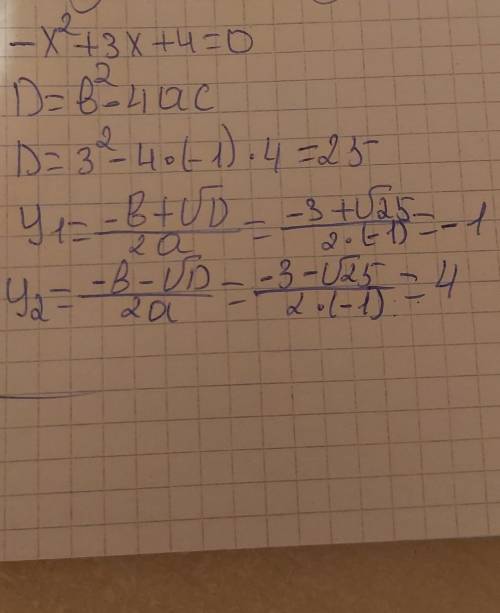 -x²+3x+4=0
D=b²-4ac
D=3²-4·(-1)·4=25
y₁=(-b+√D)/(2a)=(-3+√25)/(2·(-1))=-1
y₂=(-b-√D)/(2a)=(-3-√25)/(2·(-1))=4